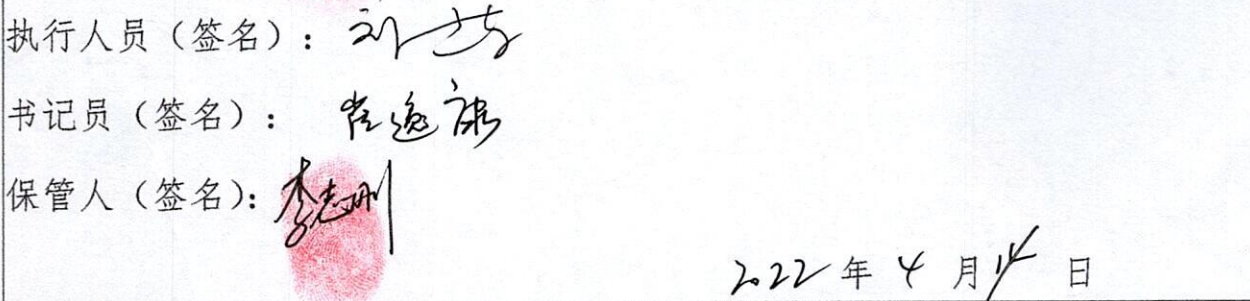 执行人员（签名）：刘
书记员（签名）：肖逸
保管人（签名）：李志刚
2022年4月14日